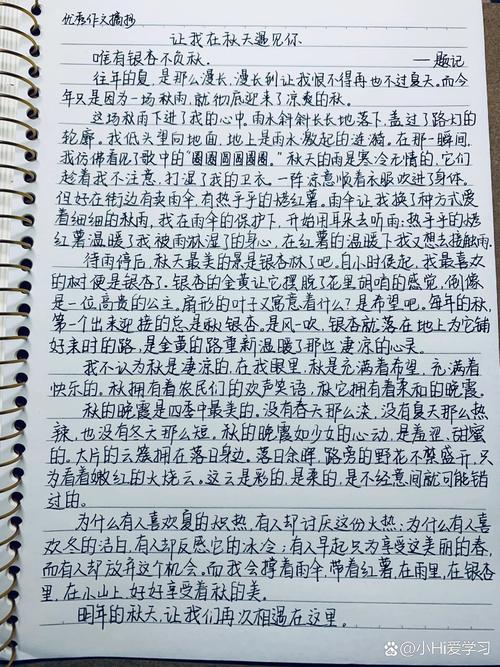 优秀作文摘抄
让我在秋天遇见你
唯有银杏不负秋.
——题记
往年的夏,是那么漫长,漫长到让我恨不得再也不过夏天。而今
年只是因为一场秋雨,就彻底迎来了凉爽的秋。
这场秋雨下进了我的心中。雨水斜斜长长地落下,盖过了路灯的
轮廓。我低头望向地面,地上是雨水激起的涟漪。在那一瞬间,
我仿佛看见了歌中的“圈圈圆圆圈圈。”秋天的雨是寒冷无情的,它们
趁着我不注意,打湿了我的卫衣。一阵凉意顺着衣服吹进了身体。
但好在街边有卖雨伞,有热乎乎的烤红薯。雨伞让我换了种方式爱
着细细的秋雨,我在雨伞的保护下,开始用耳朵去听雨;热乎乎的烤
红薯温暖了我被雨淋湿了的身心,在红薯的温暖下我又想去接触雨.
待雨停后,秋天最美的景是银杏林了吧。自小时候起,我最喜欢
的树便是银杏了。银杏的金黄让它摆脱了花里胡哨的感觉,倒像
是一位高贵的公主。扇形的叶子又寓意着什么?是希望吧。每年的秋,
第一个出来迎接的总是秋银杏。是风吹,银杏就落在地上为它铺
好来时的路,是金黄的路重新温暖了那些凄凉的心灵。
我不认为秋是凄凉的,在我眼里,秋是充满着希望,充满着
快乐的。秋拥有着农民们的欢声笑语,秋它拥有着柔和的晚霞。
秋的晚霞是四季中最美的。没有春天那么淡,没有夏天那么热
辣,也没有冬天那么短。秋的晚霞如少女的心动,是羞涩,甜蜜
的。大片的云簇拥在落日身边。落日余晖,路旁的野花不禁盛开,只
为看着嫩红的火烧云。这云是彩的,是柔的,是不经意间就可能错
过的。
为什么有人喜欢夏的炽热,有人却讨厌这份火热;为什么有人喜
欢冬的洁白,有人却反感它的冰冷;有人早起只为享受这美丽的春,
而有人却放弃这个机会。而我会撑着雨伞,带着红薯,在雨里,在银杏
里,在小山上,好好享受着秋的美。
明年的秋天,让我们再次相遇在这里。
小Hi爱学习